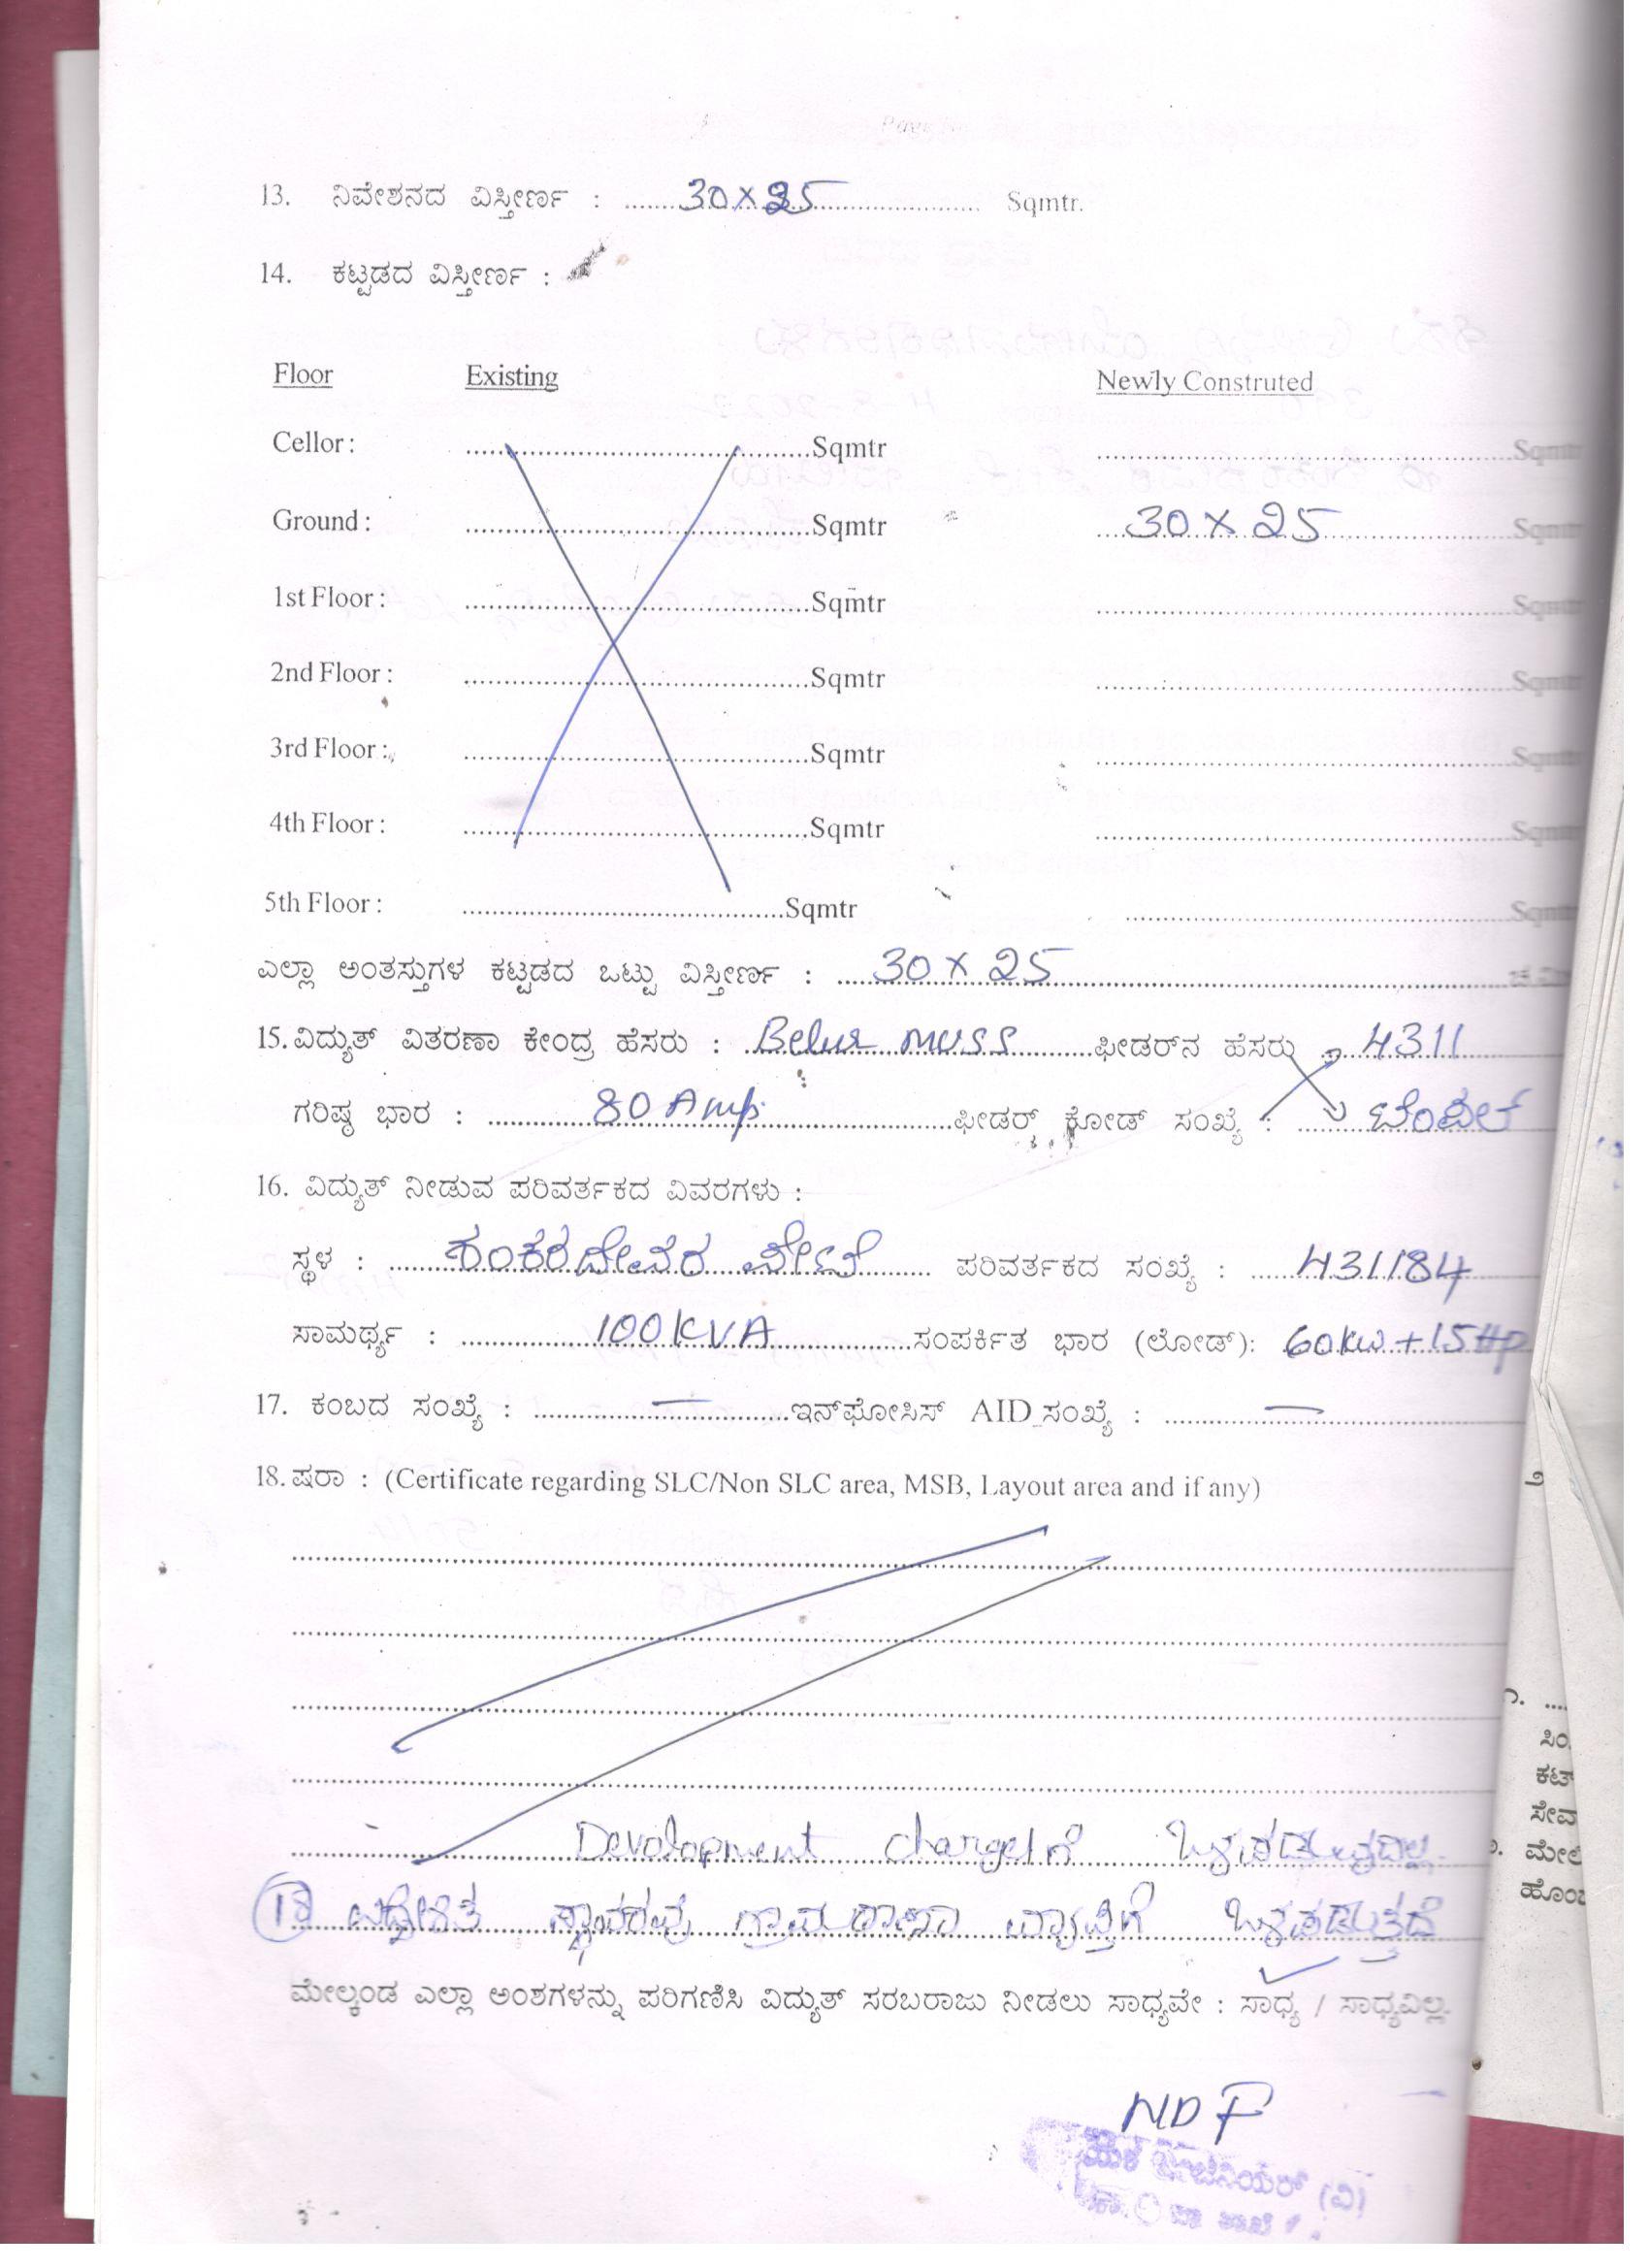 13. ನಿವೇಶನದ ವಿಸ್ತೀರ್ಣ : 30 x 25 Sqmtr.
14. ಕಟ್ಟಡದ ವಿಸ್ತೀರ್ಣ :
Floor Existing Newly Construted
Cellor : Sqmtr Sqmtr
Ground : Sqmtr 30 x 25 Sqmtr
1st Floor : Sqmtr Sqmtr
2nd Floor : Sqmtr Sqmtr
3rd Floor : Sqmtr Sqmtr
4th Floor : Sqmtr Sqmtr
5th Floor : Sqmtr Sqmtr
ಎಲ್ಲಾ ಅಂತಸ್ತುಗಳ ಕಟ್ಟಡದ ಒಟ್ಟು ವಿಸ್ತೀರ್ಣ : 30 x 25
15. ವಿದ್ಯುತ್ ವಿತರಣಾ ಕೇಂದ್ರ ಹೆಸರು : Belur muss ಫೀಡರ್‌ನ ಹೆಸರು : 4311
ಗರಿಷ್ಠ ಭಾರ : 80 Amp. ಫೀಡರ್ ಕೋಡ್ ಸಂಖ್ಯೆ :
16. ವಿದ್ಯುತ್ ನೀಡುವ ಪರಿವರ್ತಕದ ವಿವರಗಳು :
ಸ್ಥಳ : ಶಂಕರದೇವರ ಪೇಟೆ ಪರಿವರ್ತಕದ ಸಂಖ್ಯೆ : 431184
ಸಾಮರ್ಥ್ಯ : 100 KVA ಸಂಪರ್ಕಿತ ಭಾರ (ಲೋಡ್): 60kw + 15 HP
17. ಕಂಬದ ಸಂಖ್ಯೆ : — ಇನ್‌ಫೋಸಿಸ್ AID ಸಂಖ್ಯೆ : —
18. ಷರಾ : (Certificate regarding SLC/Non SLC area, MSB, Layout area and if any)
Development ಒಳಪಡುವುದಿಲ್ಲ.
18 ಉದ್ದೇಶಿತ ಸ್ಥಾವರವು ಗ್ರಾಮ ಠಾಣಾ ವ್ಯಾಪ್ತಿಗೆ ಒಳಪಡುತ್ತದೆ
ಮೇಲ್ಕಂಡ ಎಲ್ಲಾ ಅಂಶಗಳನ್ನು ಪರಿಗಣಿಸಿ ವಿದ್ಯುತ್ ಸರಬರಾಜು ನೀಡಲು ಸಾಧ್ಯವೇ : ಸಾಧ್ಯ / ಸಾಧ್ಯವಿಲ್ಲ.